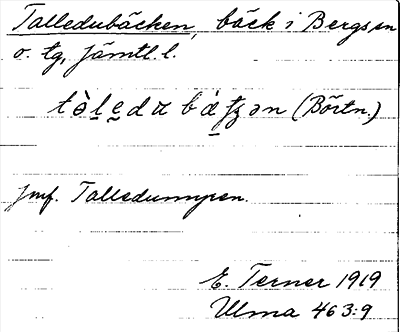 Talledubäcken, bäck i Bergs sn
o. tg, Jämtl. l.
(Börtn.)
Jmf. Talledumpen.
E. Terner 1919
Ulma 463:9